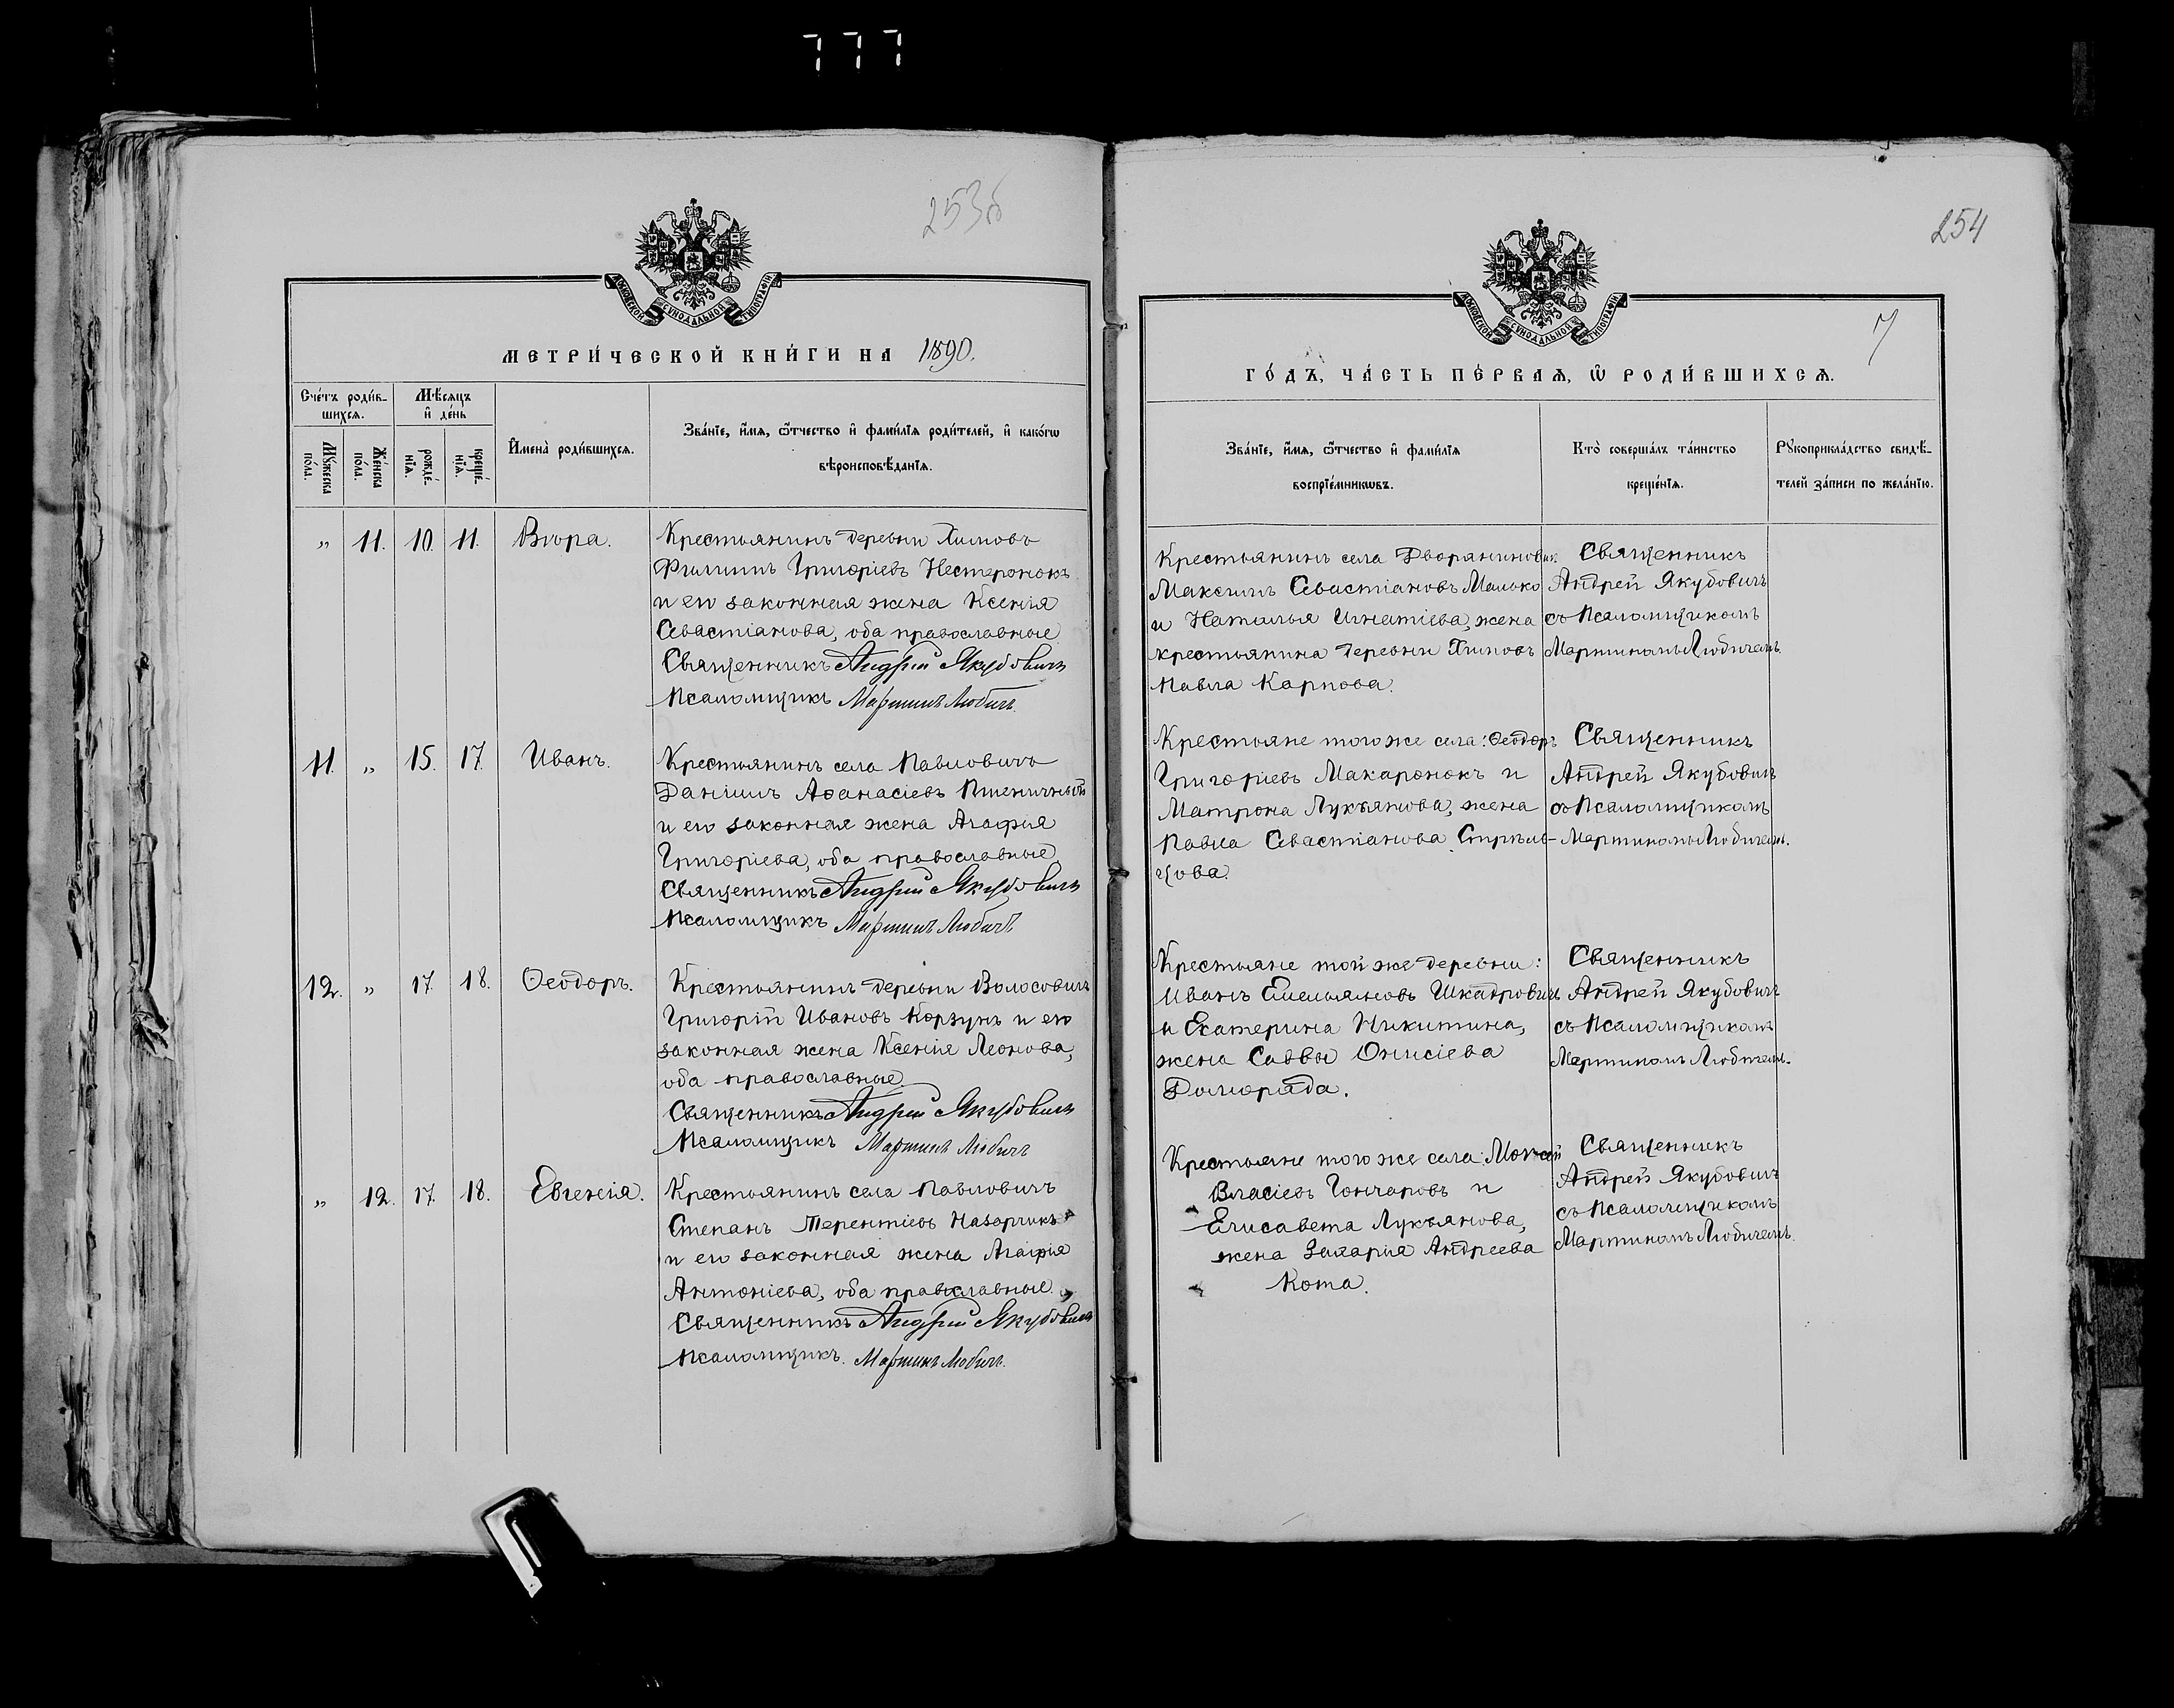 777
253об
МОСКОВСКОЙ СУНОДАЛЬНОЙ ТИПОГРАФІИ
МЕТРИ́ЧЕСКОЙ КНИ́ГИ НА 1890.
Сче́тъ роди́в-
шихся.
Мѣ́сяцъ
и҆ де́нь
Мꙋ́жеска
по́ла.
Же́нска
по́ла.
рожде́-
нїѧ.
креще́-
нїѧ.
И҆мена̀ роди́вшихся.
Зва́нїе, и҆́мѧ, ѻ҆́тчество и҆ фами́лїѧ роди́телей, и҆ како́гѡ
вѣроисповѣ́данїѧ.
„ 11. 10. 11. Вѣра.
Крестьянинъ деревни Химовъ
Филиппъ Григоріевъ Нестеронокъ
и его законная жена Ксенія
Севастіанова, оба православные
Священникъ Андрей Якубовичъ
Псаломщикъ Мартинъ Любичъ.
11. „ 15. 17. Иванъ.
Крестьянинъ села Павловичъ
Даніилъ Аѳанасіевъ Пшеничный
и его законная жена Агафія
Григоріева, оба православные.
Священникъ Андрей Якубовичъ
Псаломщикъ Мартинъ Любичъ
12. „ 17. 18. Ѳеодоръ.
Крестьянинъ деревни Волосовичъ
Григорій Ивановъ Корзунъ и его
законная жена Ксенія Леонова,
оба православные.
Священникъ Андрей Якубовичъ
Псаломщикъ Мартинъ Любичъ
„ 12. 17. 18. Евгенія.
Крестьянинъ села Павловичъ
Степанъ Терентіевъ Назарчикъ
и его законная жена Агафія
Антоніева, оба православные.
Священникъ Андрей Якубовичъ
Псаломщикъ. Мартинъ Любичъ.
254
МОСКОВСКОЙ СУНОДАЛЬНОЙ ТИПОГРАФІИ
7
ГО́ДЪ, ЧА́СТЬ ПЕ́РВАѦ, Ѡ҆ РОДИ́ВШИХСѦ.
Зва́нїе, и҆́мѧ, ѻ҆́тчество и҆ фами́лїѧ
воспрїе́мникѡвъ.
Кто̀ соверша́лъ та́инство
креще́нїѧ.
Рꙋкоприкла́дство свидѣ́-
телей за́писи по жела́нїю.
Крестьянинъ села Дворяниновичъ
Максимъ Севастіановъ Малько
и Наталья Игнатіева, жена
крестьянина деревни Химовъ
Павла Карпова.
Священникъ
Андрей Якубовичъ
съ Псаломщикомъ
Мартиномъ Любичемъ.
Крестьяне того же села: Ѳеодоръ
Григоріевъ Макаронокъ и
Матрона Лукьянова, жена
Павла Севастіанова Стрѣль-
цова.
Священникъ
Андрей Якубовичъ
съ Псаломщикомъ
Мартиномъ Любичемъ.
Крестьяне той же деревни:
Иванъ Емельяновъ Шкадровичъ
и Екатерина Никитина,
жена Саввы Онисіева
Долгорада.
Священникъ
Андрей Якубовичъ
съ Псаломщикомъ
Мартиномъ Любичемъ.
Крестьяне того же села: Моѵсей
Власіевъ Гончаровъ и
Елисавета Лукьянова,
жена Захарія Андреева
Кота.
Священникъ
Андрей Якубовичъ
съ Псаломщикомъ
Мартиномъ Любичемъ.